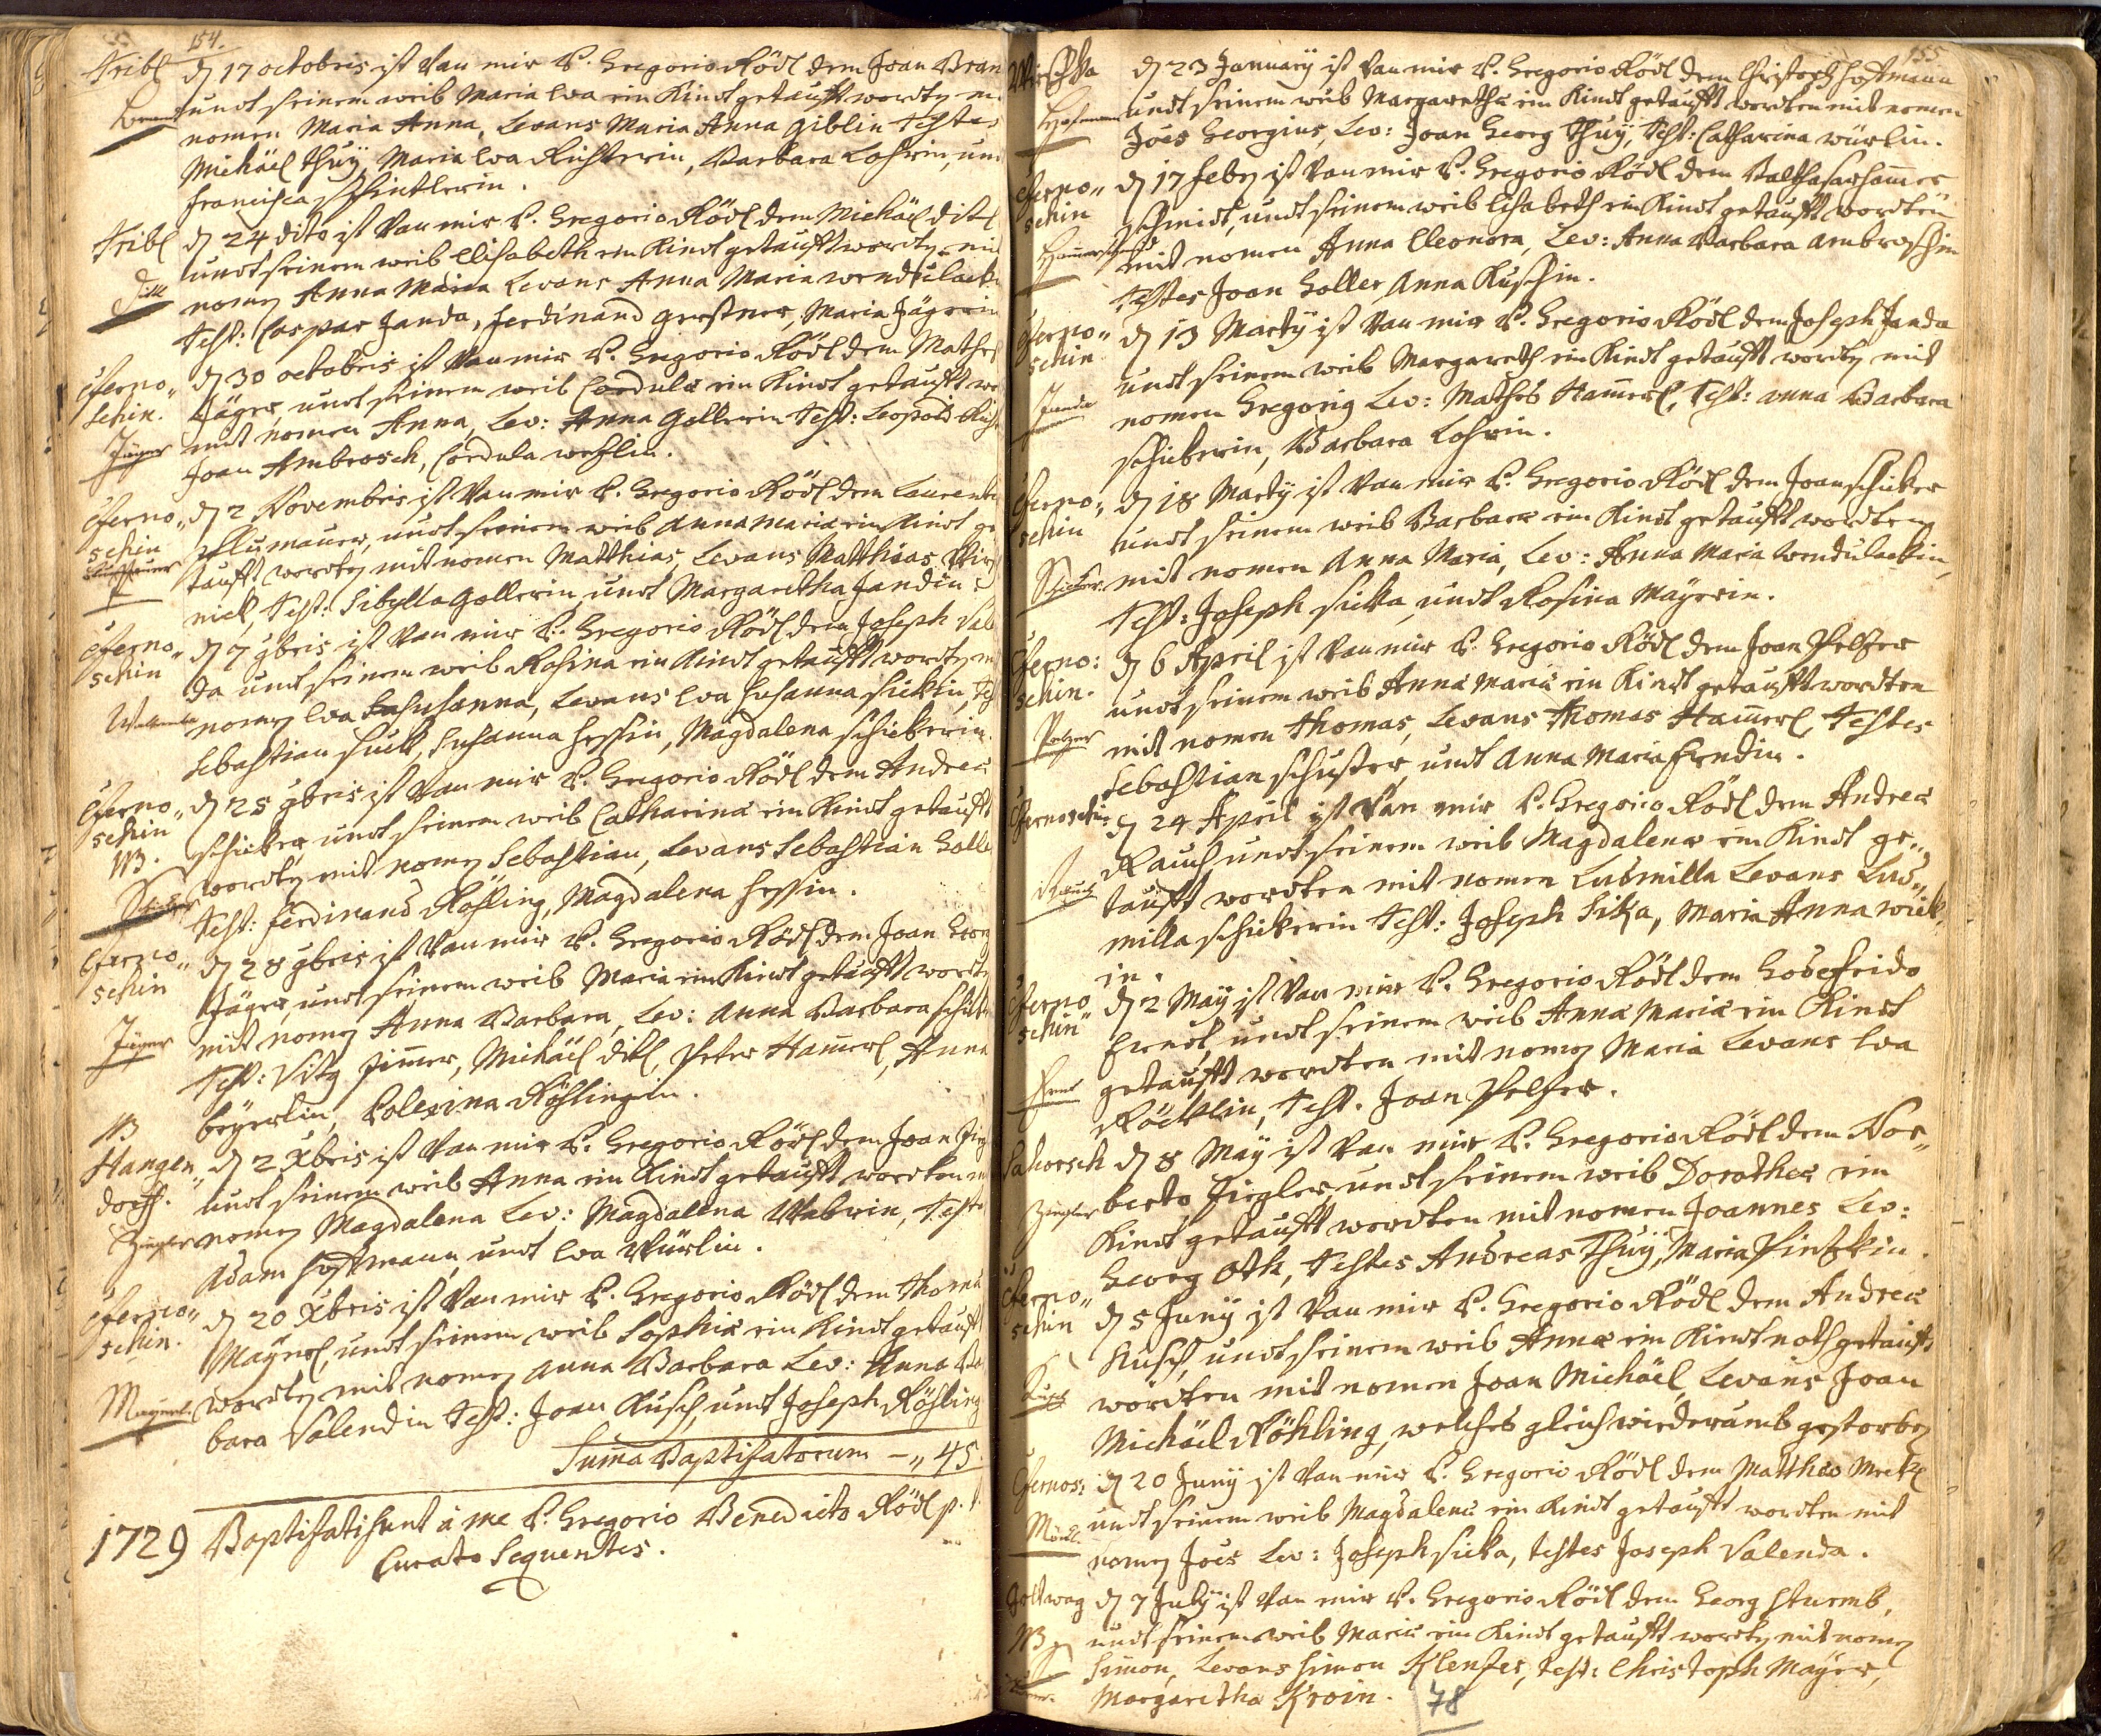 154.
Tribl dñ 17 octobris ist Van mir P. Gregorio Rödl dem Joan Bran
undt seinem weib Maria Eva ein Kindt getaufft wordtn m.
nomen Maria Anna, Levans Maria Anna Giblin Testes
Michäel Thuÿ, Maria Eva Richterin, Barbara Lohrin, un
Francisca Schintlerin.
Tribl dñ 24 dito ist Van mir P. Gregorio Rödl dem Michäel ditl
Ditl undt seinem weib Elisabeth ein Kindt getaufft wordtn mi
nomen Anna Maria Levans Anna Maria wendulack
Test: Caspar Janda, Ferdinand gerstner, Maria Jägerin
Cferno„ schin. dñ 30 octobris ist Van mir P. Gregorio Rödl dem Mathes
Jäger Jäger, undt seinem weib Cordula ein Kindt getaufft wo
mit nomen Anna, Lev: Anna Gollerin Test: Leopold
Joan Ambrosch, Cordula
Cferno„ schin dñ 2 Novembris ist Van mir P. Gregorio Rödl dem Laurent
Pflumauer, undt seinem weib Anna Maria ein Kindt ge
taufft wordtn mit nomen Matthias, Levans Matthias
niel, Test: Sibylla Gollerin, undt Margaretha Jandin.
Cferno„ schin dñ 7 9bris ist Van mir P. Gregorio Rödl dem Joseph Val
da undt seinem weib Rosina ein Kindt getaufft wordtn m
nomen Eva Susanna, Levans Eva Susanna sickin, Tes
Sebastian sick, Susanna hessin, Magdalena schickerin.
Cferno„ schin dñ 25 9bris ist Van mir P. Gregorio Rödl dem Andrea
NB. Schicker undt seinem weib Catharina ein Kindt getaufft
wordtn mit nomen Sebastian, Levans Sebastian Golle
Test: Ferdinand Röhling, Magdalena hessin.
Cferno„ schin dñ 28 9bris ist Van mir P. Gregorio Rödl dem Joan Georg
Jäger Jäger, undt seinem weib Maria ein Kindt getaufft wordt
mit nomen Anna Barbara, Lev: Anna Barbara
Test: Vitg Zimer, Michäel ditl, Peter Hamerl, Anna
beyerlin, Polexina Röhlingin.
NB Stangen„ dorff. dñ 2 Xbris ist Van mir P. Gregorio Rödl dem Joan Zieg
Ziegler undt seinem weib Anna ein Kindt getaufft wordten m
nomen Magdalena Lev: Magdalena Weberin, Teste
Adam hostmann, undt Eva Würlin.
Cferno„ schin. dñ 20 Xbris ist Van mir P. Gregorio Rödl dem Thoma
Mayerl Maÿerl, undt seinem weib Sophia ein Kindt getaufft
wordtn mit nomen Anna Barbara Lev: Anna Bar
bara Valendin Test: Joan Kusch, undt Joseph Röhling
Suma Baptisatorum – „ 45.
1729 Baptisati sunt à me P. Gregorio Benedicto Rödl p. t.
Curato Sequentes.
155
dñ 23 January ist Van mir P. Gregorio Rödl dem Christoph hostmann
undt seinem weib Margaretha ein Kindt getaufft wordten mit nomen
Joes Georgius, Lev: Joan Georg Thuÿ, Test: Catharina würlin.
Cferno„ schin dñ 17 Feb ist Van mir P. Gregorio Rödl dem Balthasar hamer
schmidt, undt seinem weib Elisabeth ein Kindt getaufft wordten
mit nomen Anna Eleonora, Lev: Anna Barbara Ambroschin
Testes Joan Goller Anna Kuschin.
Cferno„ schin. dñ 13 Martÿ ist Van mir P. Gregorio Rödl dem Joseph Janda
Janda undt seinem weib Margareth ein Kindt getaufft wordtn mit
nomen Gregorig Lev: Mathes Hamerl, Test: Anna Barbara
schickerin, Barbara Lohrin.
Cferno„ schin dñ 18 Martÿ ist Van mir P. Gregorio Rödl dem Joan schicker
Schicker undt seinem weib Barbara ein Kindt getaufft wordten
mit nomen Anna Maria, Lev: Anna Maria Wendulackin,
Test: Joseph sicka, undt Rosina Mayerin.
Cferno: schin. dñ 6 April ist Van mir P. Gregorio Rödl dem Joan Pelzer
Pelzer undt seinem weib Anna Maria ein Kindt getaufft wordten
mit nomen Thomas, Levans Thomas Hamerl, Testes
Sebastian schuster, undt Anna Maria Erndin.
Cfernoschin: dñ 24 April ist Van mir P. Gregorio Rödl dem Andrea
Rauch Rauch undt seinem weib Magdalena ein Kindt ge„
taufft wordten mit nomen Ludmilla Levans Lud„
milla schickerin Test: Joseph Sika, Maria Anna wick„
in.
Cferno schin„ dñ 2 Maÿ ist Van mir P. Gregorio Rödl dem Godefrido
Ernd Erndt, undt seinem weib Anna Maria ein Kindt
getaufft wordten mit nomen Maria Levans Eva
Röcklin, Test. Joan Pelzer.
Sahorsch dñ 8 Maÿ ist Van mir P. Gregorio Rödl dem Nor„
Ziegler berto Ziegler, undt seinem weib Dorothea ein
Kindt getaufft wordten mit nomen Joannes Lev:
Georg Oth, Testes Andreas Thuÿ, Maria Pintzkin.
Cferno„ schin dñ 5 Junÿ ist Van mir P. Gregorio Rödl dem Andrea
Kusch Kusch, undt seinem weib Anna ein Kindt noth getaufft
wordten mit nomen Joan Michäel, Levans Joan
Michäel Röhling, welches gleich wiederumb gestorben
Cfernos: dñ 20 Junÿ ist Van mir P. Gregorio Rödl dem Matthæo
undt seinem weib Magdalena ein Kindt getaufft wordten mit
nomen Joes Lev: Joseph sicka, testes Joseph Valenda.
dñ 7 Julÿ ist Van mir P. Gregorio Rödl dem Georg Sturmb,
NB undt seinem weib Maria ein Kindt getaufft wordtn mit nomen
Simon, Levans Simon Klenzer, test: Christoph Mayer,
Margaretha Kroin. 78